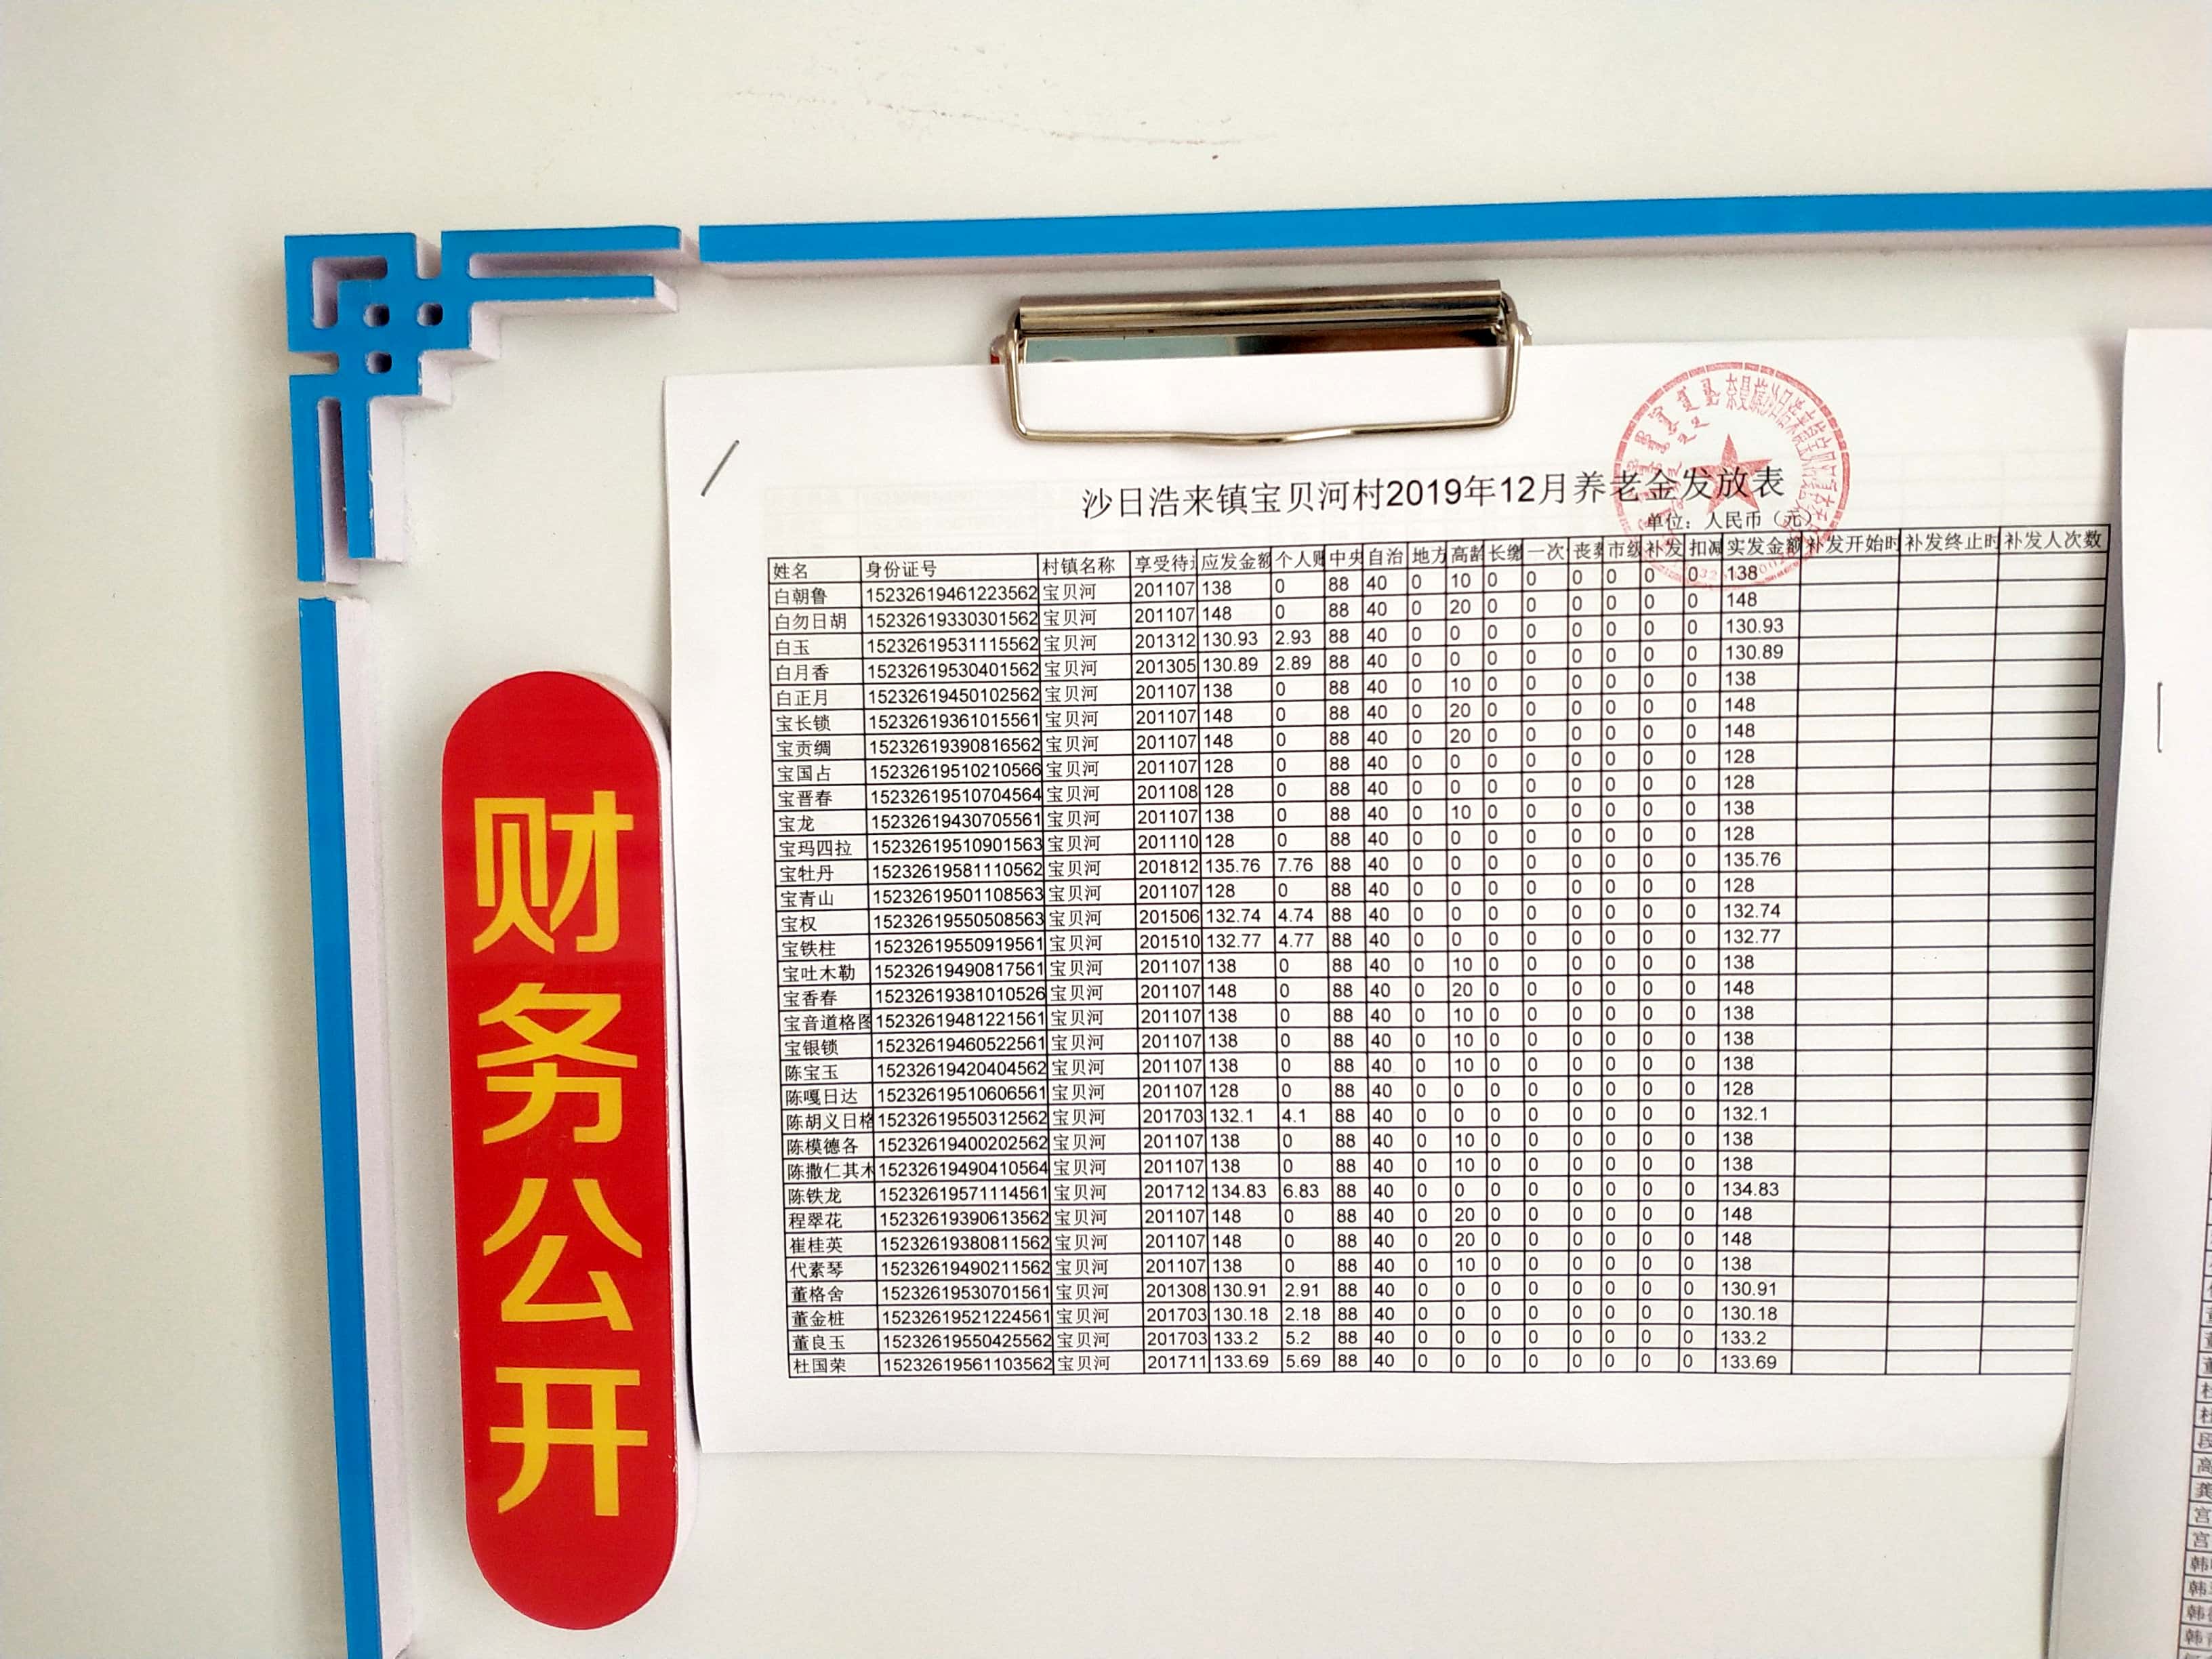 财务公开
沙日浩来镇宝贝河村2019年12月养老金发放表
单位：人民币（元）
姓名 身份证号 村镇名称 享受待 应发金额 个人账 中央 自治 地方 高龄 长缴 一次 丧葬 市级 补发 扣减 实发金额 补发开始时 补发终止时 补发人次数
白朝鲁 15232619461223562 宝贝河 201107 138 0 88 40 0 10 0 0 0 0 0 0 138
白勿日胡 15232619330301562 宝贝河 201107 148 0 88 40 0 20 0 0 0 0 0 0 148
白玉 15232619531115562 宝贝河 201312 130.93 2.93 88 40 0 0 0 0 0 0 0 0 130.93
白月香 15232619530401562 宝贝河 201305 130.89 2.89 88 40 0 0 0 0 0 0 0 0 130.89
白正月 15232619450102562 宝贝河 201107 138 0 88 40 0 10 0 0 0 0 0 0 138
宝长锁 15232619361015561 宝贝河 201107 148 0 88 40 0 20 0 0 0 0 0 0 148
宝贡绸 15232619390816562 宝贝河 201107 148 0 88 40 0 20 0 0 0 0 0 0 148
宝国占 15232619510210566 宝贝河 201107 128 0 88 40 0 0 0 0 0 0 0 0 128
宝晋春 15232619510704564 宝贝河 201108 128 0 88 40 0 0 0 0 0 0 0 0 128
宝龙 15232619430705561 宝贝河 201107 138 0 88 40 0 10 0 0 0 0 0 0 138
宝玛四拉 15232619510901563 宝贝河 201110 128 0 88 40 0 0 0 0 0 0 0 0 128
宝牡丹 15232619581110562 宝贝河 201812 135.76 7.76 88 40 0 0 0 0 0 0 0 0 135.76
宝青山 15232619501108563 宝贝河 201107 128 0 88 40 0 0 0 0 0 0 0 0 128
宝权 15232619550508563 宝贝河 201506 132.74 4.74 88 40 0 0 0 0 0 0 0 0 132.74
宝铁柱 15232619550919561 宝贝河 201510 132.77 4.77 88 40 0 0 0 0 0 0 0 0 132.77
宝吐木勒 15232619490817561 宝贝河 201107 138 0 88 40 0 10 0 0 0 0 0 0 138
宝香春 15232619381010526 宝贝河 201107 148 0 88 40 0 20 0 0 0 0 0 0 148
宝音道格图 15232619481221561 宝贝河 201107 138 0 88 40 0 10 0 0 0 0 0 0 138
宝银锁 15232619460522561 宝贝河 201107 138 0 88 40 0 10 0 0 0 0 0 0 138
陈宝玉 15232619420404562 宝贝河 201107 138 0 88 40 0 10 0 0 0 0 0 0 138
陈嘎日达 15232619510606561 宝贝河 201107 128 0 88 40 0 0 0 0 0 0 0 0 128
陈胡义日格 15232619550312562 宝贝河 201703 132.1 4.1 88 40 0 0 0 0 0 0 0 0 132.1
陈模德各 15232619400202562 宝贝河 201107 138 0 88 40 0 10 0 0 0 0 0 0 138
陈撒仁其木 15232619490410564 宝贝河 201107 138 0 88 40 0 10 0 0 0 0 0 0 138
陈铁龙 15232619571114561 宝贝河 201712 134.83 6.83 88 40 0 0 0 0 0 0 0 0 134.83
程翠花 15232619390613562 宝贝河 201107 148 0 88 40 0 20 0 0 0 0 0 0 148
崔桂英 15232619380811562 宝贝河 201107 148 0 88 40 0 20 0 0 0 0 0 0 148
代素琴 15232619490211562 宝贝河 201107 138 0 88 40 0 10 0 0 0 0 0 0 138
董格舍 15232619530701561 宝贝河 201308 130.91 2.91 88 40 0 0 0 0 0 0 0 0 130.91
董金桩 15232619521224561 宝贝河 201703 130.18 2.18 88 40 0 0 0 0 0 0 0 0 130.18
董良玉 15232619550425562 宝贝河 201703 133.2 5.2 88 40 0 0 0 0 0 0 0 0 133.2
杜国荣 15232619561103562 宝贝河 201711 133.69 5.69 88 40 0 0 0 0 0 0 0 0 133.69
高
龚
宫
宫
韩
韩
韩
韩